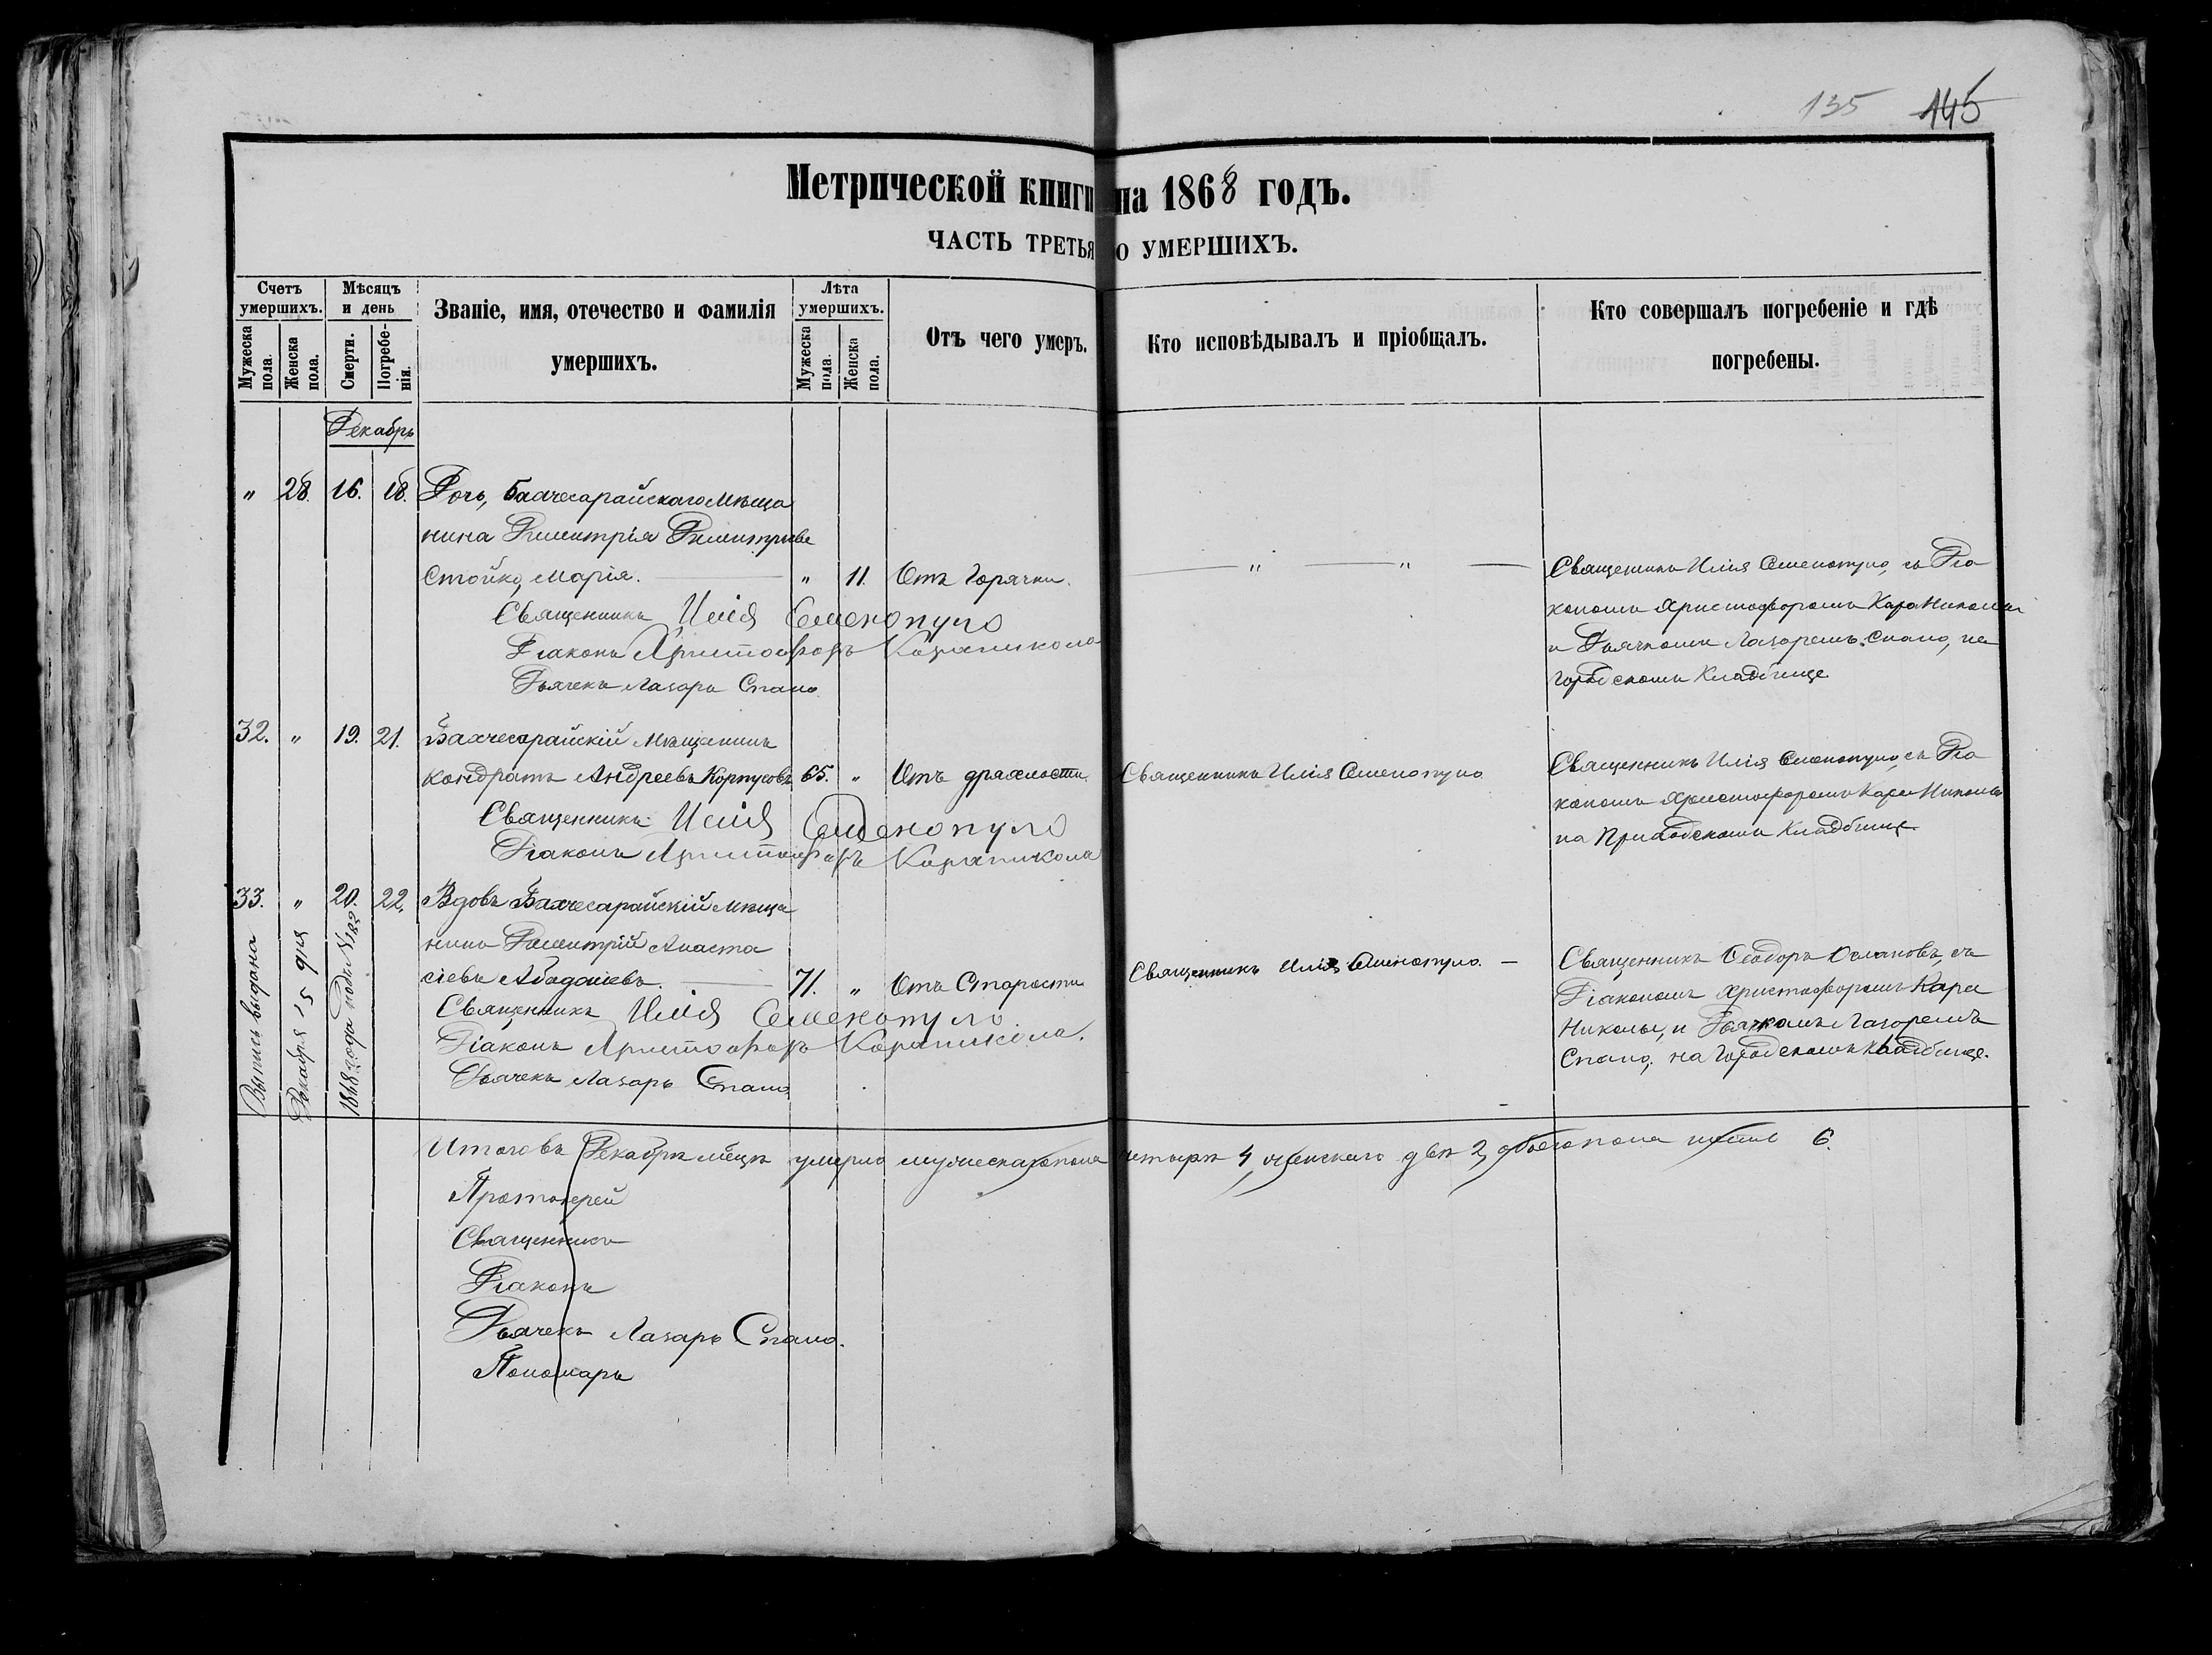 135 145
Метрической книги на 1868 годъ.
ЧАСТЬ ТРЕТЬЯ О УМЕРШИХЪ.
Счетъ умершихъ.
Мужеска пола.
Женска пола.
Мѣсяцъ и день
Смерти.
Погребенія.
Званіе, имя, отечество и фамилія
умершихъ.
Лѣта умершихъ.
Мужеска пола.
Женска пола.
Отъ чего умеръ.
Кто исповѣдывалъ и пріобщалъ.
Кто совершалъ погребеніе и гдѣ
погребены.
Декабрь
" 28. 16. 18. Дочь, Бахчесарайскаго Мѣща
нина Димитрія Димитріева
Стойко, Марія. " 11. Отъ Горячки. " "
Священникъ Илія Семенопуло, съ Діа
кономъ Христофоромъ Кара Николы
и Дьячкомъ Лазаремъ Спано, на
Городскомъ Кладбище
Священникъ Илія Семенопуло
Діаконъ Христофоръ Караникола
Дьячекъ Лазарь Спано.
32. " 19. 21. Бахчесарайскій Мѣщанинъ
Кондратъ Андреевъ Корпусовъ 65. " Отъ дряхлости Священникъ Илія Семенопуло
Священникъ Илія Семенопуло, съ Діа
кономъ Христофоромъ Кара Николы
на Приходскомъ Кладбище.
Священникъ Илія Семенопуло
Діаконъ Христофоръ Караникола
33. " 20. 22. Вдовъ Бахчесарайскій мѣща
нинъ Димитрій Анаста
сіевъ 71. " Отъ Старости Священникъ Илія Семенопуло. —
Священникъ Ѳеодоръ съ
Діакономъ Христофоромъ Кара
Николы, и Дьячкомъ Лазаремъ
Спано, на Городскомъ Кладбище.
Священникъ Илія Семенопуло
Діаконъ Христофоръ Караникола.
Дьячекъ Лазарь Спано
Выпись выдана
Декабря 15 дня
1868 года подъ №
Итого въ Декабрѣ мѣцѣ умерло мужескаго пола четыре 4, женскаго двѣ 2, обоего пола шесть 6.
Протоіерей
Священникъ
Діаконъ
Дьячекъ Лазарь Спано.
Пономарь